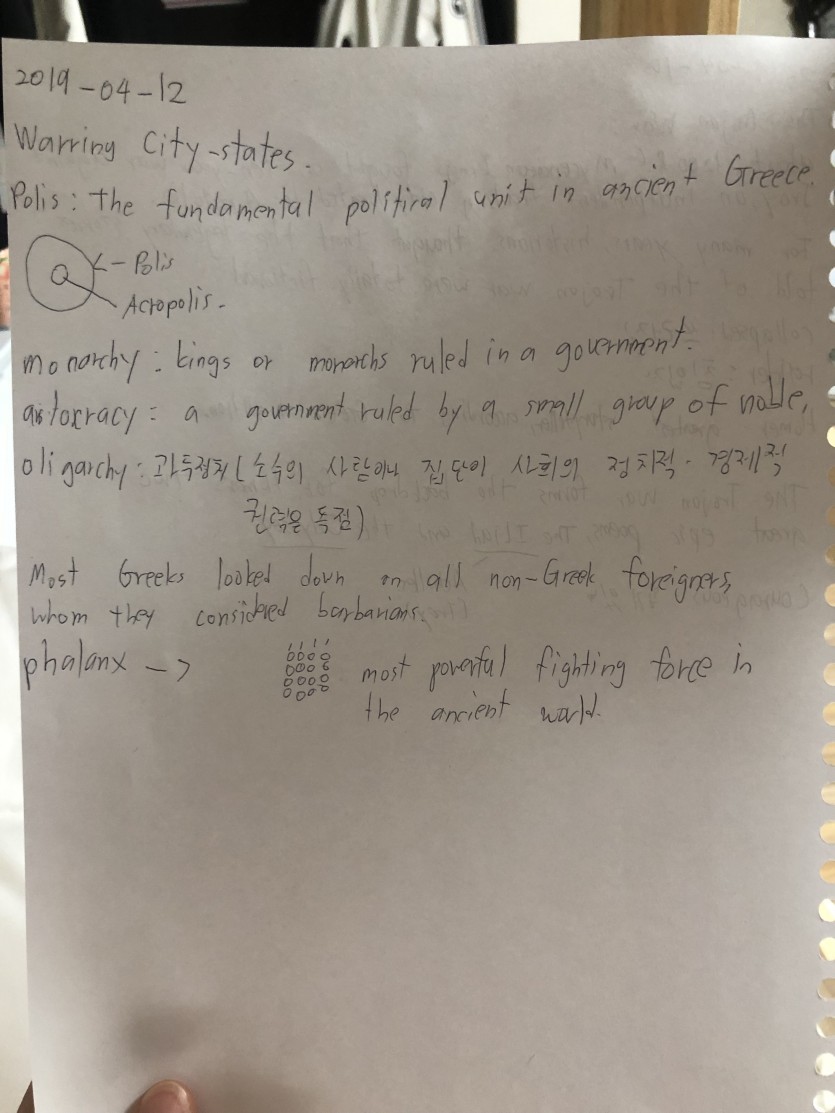 2019-04-12
Warring City-states.
Polis: the fundamental political unit in ancient Greece.
<- Polis
Acropolis.
monarchy: kings or monarchs ruled in a government.
aristocracy: a government ruled by a small group of noble.
oligarchy: 과두정치(소수의 사람이나 집단이 사회의 정치적·경제적
권력을 독점)
Most Greeks looked down on all non-Greek foreigners,
whom they considered barbarians.
phalanx -> most powerful fighting force in
the ancient world.